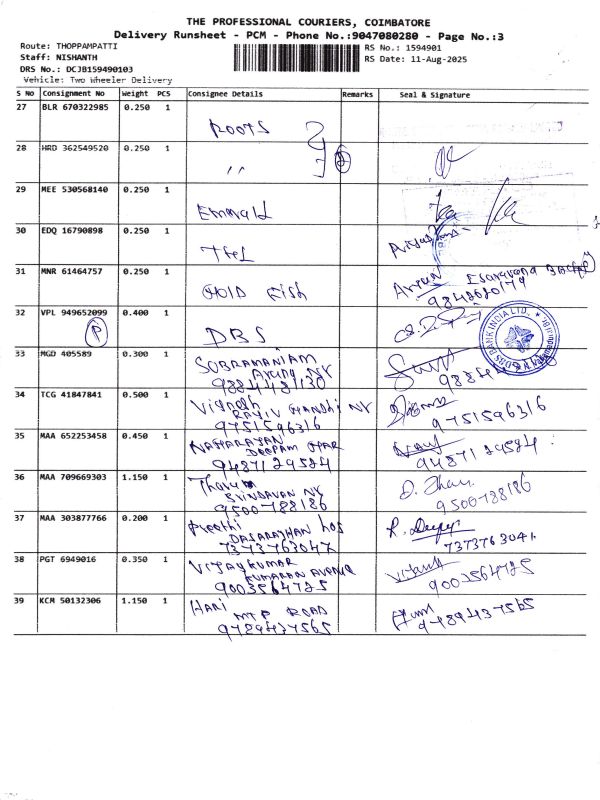 THE PROFESSIONAL COURIERS, COIMBATORE
Delivery Runsheet - PCM - Phone No.:9047080280 - Page No.:3
Route: THOPPAMPATTI
RS No.: 1594901
Staff: NISHANTH
RS Date: 11-Aug-2025
DRS No.: DCJB159490103
Vehicle: Two Wheeler Delivery
S No Consignment No Weight PCS Consignee Details Remarks Seal & Signature
27 BLR 670322985 0.250 1
ROOTS
28 HRD 362549520 0.250 1
,,
29 MEE 530568140 0.250 1
Emerald
30 EDQ 16790898 0.250 1
31 MNR 61464757 0.250 1
GOLD Fish
Arjun
32 VPL 949652099 0.400 1
P
DBS
DBS BANK INDIA LTD.
33 MGD 405589 0.300 1
SUBRAMANIAM
34 TCG 41847841 0.500 1
Vignesh
RAJIV GANDHI NY
9751596316
9751596316
35 MAA 652253458 0.450 1
NATARAJAN
DEEPAM
9487129584
9487129584
36 MAA 709669303 1.150 1
BRINDAVAN NY
9500788186
9500788186
37 MAA 303877766 0.200 1
Preethi
DASARATHAN
7373763047
7373763041
38 PGT 6949016 0.350 1
VIJAYKUMAR
KUMARAN AVENUE
9003564785
9003564785
39 KCM 50132306 1.150 1
HARI
MTP ROAD
9789437565
9489437565